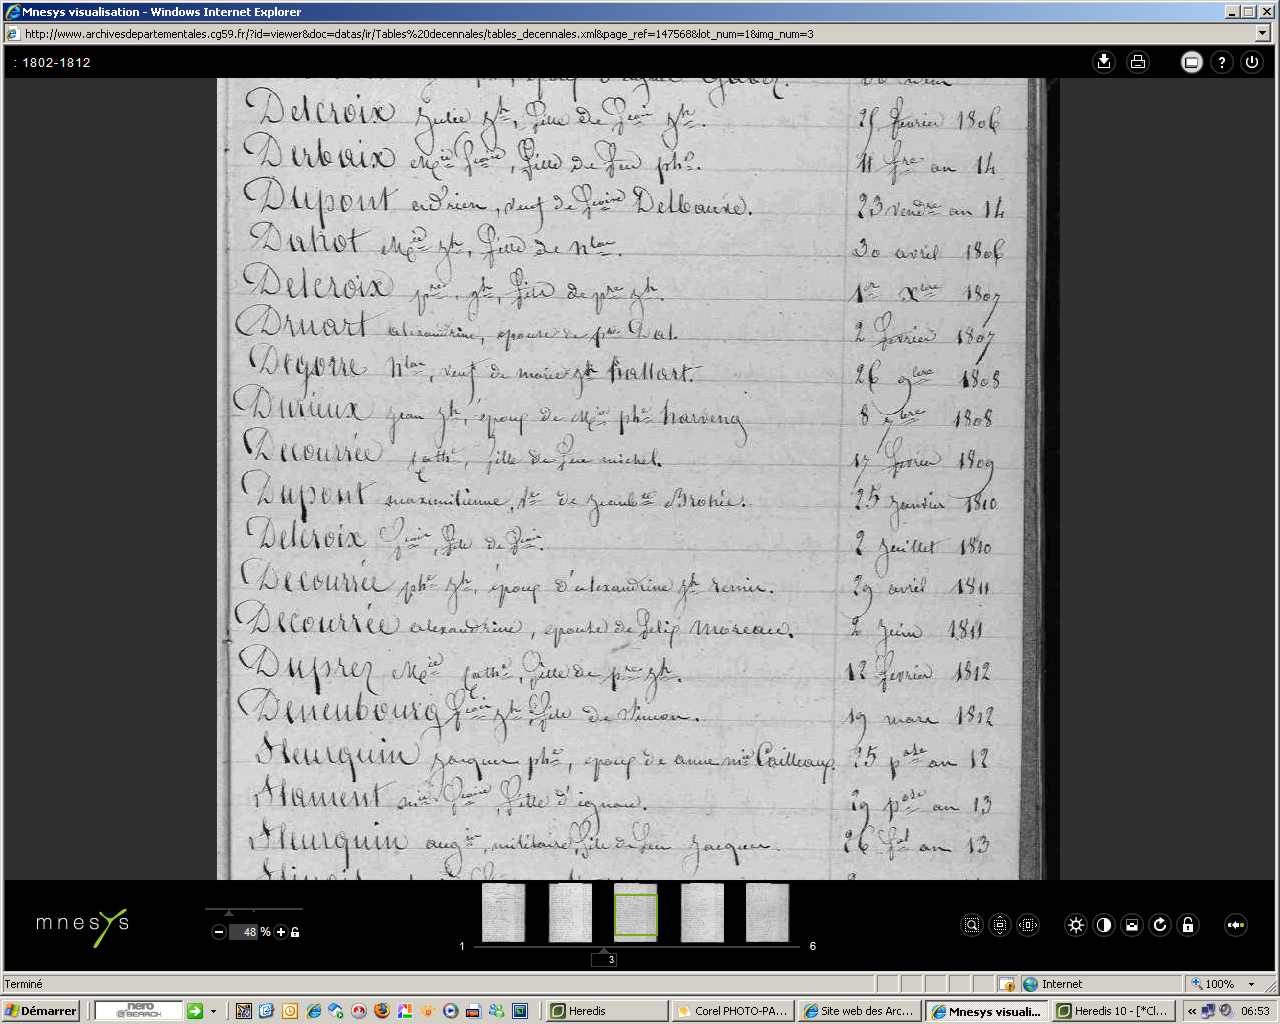 Mnesys visualisation - Windows Internet Explorer
http://www.archivesdepartementales.cg59.fr/?id=viewer&doc=datas/ir/Tables%20decennales/tables_decennales.xml&page_ref=147568&lot_num=1&img_num=3
: 1802-1812
Delcroix Julie jh, fille de jh. 25 fevrier 1806
Derbaix fille de feu phe. 11 fre an 14
Dupont adrien, veuf de Delbauve. 23 vendre an 14
Dahot Mie jh, fille de nlas. 30 avril 1806
Delcroix pre. jh, fils de pre jh. 1er xbre 1807
Druart alexandrine, epouse de pre Dol. 2 fevrier 1807
Degorre nlas, veuf de marie jh hallart. 26 9bre 1808
Durieux jean jh, époux de Mie phe harveng 8 1808
Decourrée cathe, fille de feu michel. 17 fevrier 1809
Dupont maximilienne, de Brohée. 25 janvier 1810
Delcroix fils de 2 juillet 1810
Decourrée phe jh, époux d'alexandrine jh remie. 29 avril 1811
Decourrée alexandrine, epouse de felix Moreau. 2 juin 1811
Duprez Mie cathe, fille de pre jh. 12 fevrier 1812
Deneubourg jh fils de Simon. 19 mars 1812
fleurquin jacques phe, epoux de anne mie Cailleaux. 25 pose an 12
flament fille d'ignace. 29 pose an 13
fleurquin militaire, fils de feu jacques. 26 an 13
mnesys
48 %
1
6
3
Terminé
Internet
100%
Démarrer
nero
SEARCH
Heredis
Corel PHOTO-PA...
Site web des Arc...
Mnesys visuali...
Heredis 10 - [*Cl...
06:53